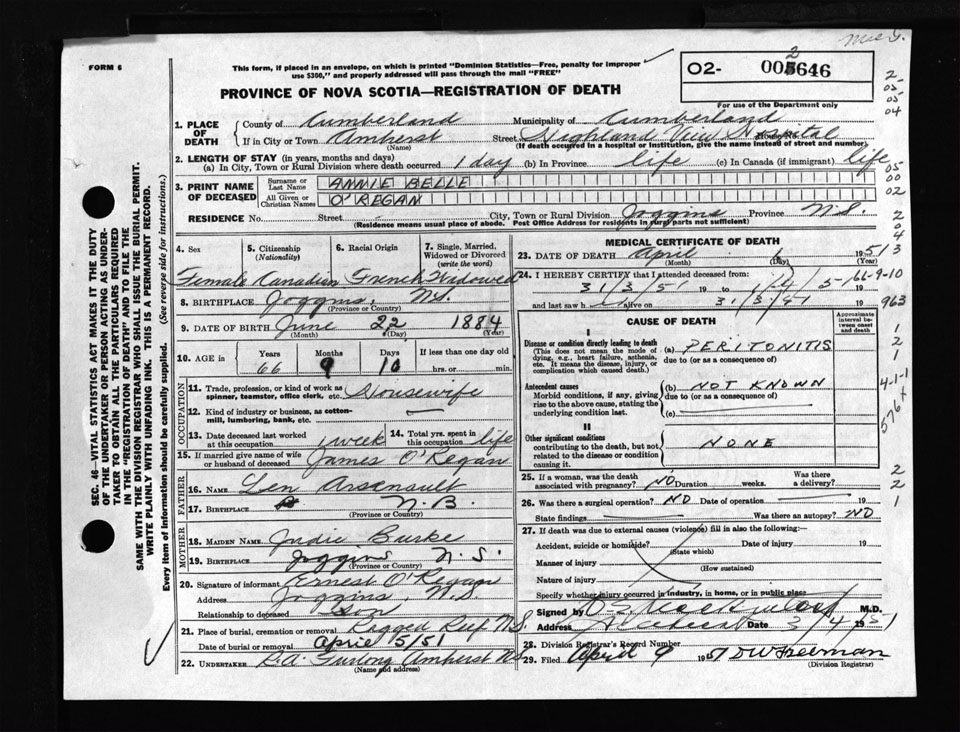 Mic G.
FORM 6
This form, if placed in an envelope, on which is printed "Dominion Statistics—Free, penalty for improper
use $300," and properly addressed will pass through the mail "FREE"
02- 005646
2
PROVINCE OF NOVA SCOTIA—REGISTRATION OF DEATH
For use of the Department only
1. PLACE OF DEATH
County of Cumberland Municipality of Cumberland
If in City or Town Amherst Street Highland View Hospital House No.
(Name) (If death occurred in a hospital or institution, give the name instead of street and number)
2. LENGTH OF STAY (in years, months and days)
(a) In City, Town or Rural Division where death occurred 1 day (b) In Province life (c) In Canada (if immigrant) life
3. PRINT NAME OF DECEASED
Surname or Last Name ANNIE BELLE
All Given or Christian Names O'REGAN
RESIDENCE No. Street City, Town or Rural Division Joggins Province N.S.
(Residence means usual place of abode. Post Office Address for residents in rural parts not sufficient)
4. Sex 5. Citizenship (Nationality) 6. Racial Origin 7. Single, Married, Widowed or Divorced (write the word)
Female Canadian French Widowed
8. BIRTHPLACE Joggins, N.S.
(Province or Country)
9. DATE OF BIRTH June 22 1884
(Month) (Day) (Year)
10. AGE in Years Months Days If less than one day old
66 9 10 hrs. or min.
OCCUPATION
11. Trade, profession, or kind of work as
spinner, teamster, office clerk, etc. Housewife
12. Kind of industry or business, as cotton-
mill, lumbering, bank, etc. —
13. Date deceased last worked
at this occupation 1 week
14. Total yrs. spent in
this occupation life
15. If married give name of wife
or husband of deceased James O'Regan
FATHER
16. NAME Len Arsenault
17. BIRTHPLACE N.B.
(Province or Country)
MOTHER
18. MAIDEN NAME Judie Burke
19. BIRTHPLACE Joggins N.S.
(Province or Country)
20. Signature of informant Ernest O'Regan
Address Joggins, N.S.
Relationship to deceased Son
21. Place of burial, cremation or removal Ragged Reef N.S.
Date of burial or removal April 5/51
22. UNDERTAKER R.A. Furlong Amherst N.S.
(Name and address)
MEDICAL CERTIFICATE OF DEATH
23. DATE OF DEATH April 1 1951
(Month) (Day) (Year)
24. I HEREBY CERTIFY that I attended deceased from:
31/3/51 19 to 1/4/51 19
and last saw h alive on 31/3/51 19
CAUSE OF DEATH
Approximate interval between onset and death
I
Disease or condition directly leading to death (a) PERITONITIS
(This does not mean the mode of dying, e.g., heart failure, asthenia, etc. It means the disease, injury, or complication which caused death.)
due to (or as a consequence of)
Antecedent causes (b) NOT KNOWN
Morbid conditions, if any, giving rise to the above cause, stating the underlying condition last.
due to (or as a consequence of)
(c)
II
Other significant conditions NONE
contributing to the death, but not related to the disease or condition causing it.
25. If a woman, was the death
associated with pregnancy? NO Duration weeks. Was there a delivery?
26. Was there a surgical operation? NO Date of operation 19
State findings Was there an autopsy? NO
27. If death was due to external causes (violence) fill in also the following:-
Accident, suicide or homicide? Date of injury 19
(State which)
Manner of injury
(How sustained)
Nature of injury
Specify whether injury occurred in industry, in home, or in public place
Signed by M.D.
Address Amherst Date 3/4/1951
28. Division Registrar's Record Number
29. Filed April 9 1951 D W Freeman
(Division Registrar)
SEC. 46—VITAL STATISTICS ACT MAKES IT THE DUTY
OF THE UNDERTAKER OR PERSON ACTING AS UNDER-
TAKER TO OBTAIN ALL THE PARTICULARS REQUIRED
IN THE "REGISTRATION OF DEATH" AND TO FILE THE
SAME WITH THE DIVISION REGISTRAR WHO SHALL ISSUE THE BURIAL PERMIT.
WRITE PLAINLY WITH UNFADING INK. THIS IS A PERMANENT RECORD.
Every item of Information should be carefully supplied. (See reverse side for instructions.)
2
03-
05-
04
05
00
02
2
04
3
66-9-10
963
1
2
1
4-1-1
576 x
2
2
1